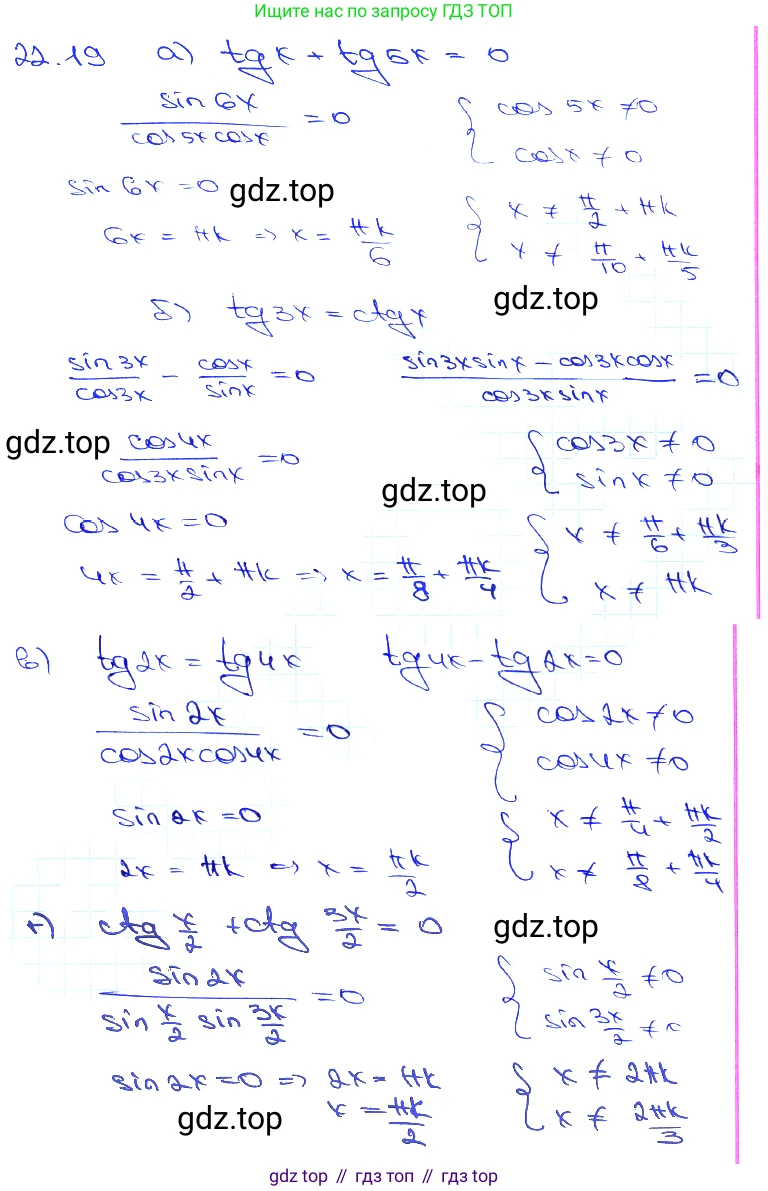 Ищите нас по запросу ГДЗ ТОП
22.19 а) tgx + tg5x = 0
sin6x / cos5x cosx = 0 { cos 5x ≠ 0
cosx ≠ 0
sin 6x = 0 gdz.top
6x = πk => x = πk/6 { x ≠ π/2 + πk
x ≠ π/10 + πk/5
gdz.top
б) tg3x = ctgx
sin3x/cos3x − cosx/sinx = 0 sin3x sinx − cos3x cosx / cos3x sinx = 0
gdz.top cos4x / cos3x sinx = 0 { cos3x ≠ 0
sinx ≠ 0
gdz.top
cos 4x = 0
4x = π/2 + πk => x = π/8 + πk/4 { x ≠ π/6 + πk/3
x ≠ πk
в) tg2x = tg4x tg4x − tg2x = 0
sin2x / cos2x cos4x = 0 { cos2x ≠ 0
cos4x ≠ 0
sin2x = 0
2x = πk => x = πk/2 { x ≠ π/4 + πk/2
x ≠ π/8 + πk/4
г) ctg x/2 + ctg 3x/2 = 0 gdz.top
sin2x / sin x/2 sin 3x/2 = 0 { sin x/2 ≠ 0
sin 3x/2 ≠ 0
sin2x = 0 => 2x = πk { x ≠ 2πk
gdz.top x = πk/2 x ≠ 2πk/3
gdz top // гдз топ // gdz top